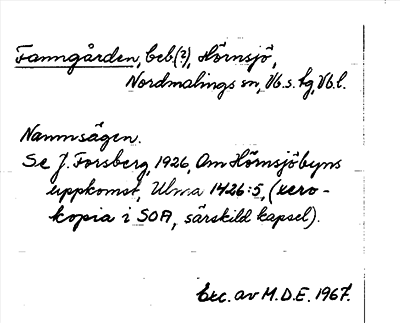 Fanngården, beb(?), Hörnsjö,
Nordmalings sn, Vb.s. tg, Vb.l.
Namnsägen.
Se J. Forsberg, 1926, Om Hörnsjöbyns
uppkomst, Ulma 1426:5, (xero-
kopia i SOA, särskild kapsel).
Exc. av M.D.E. 1967.